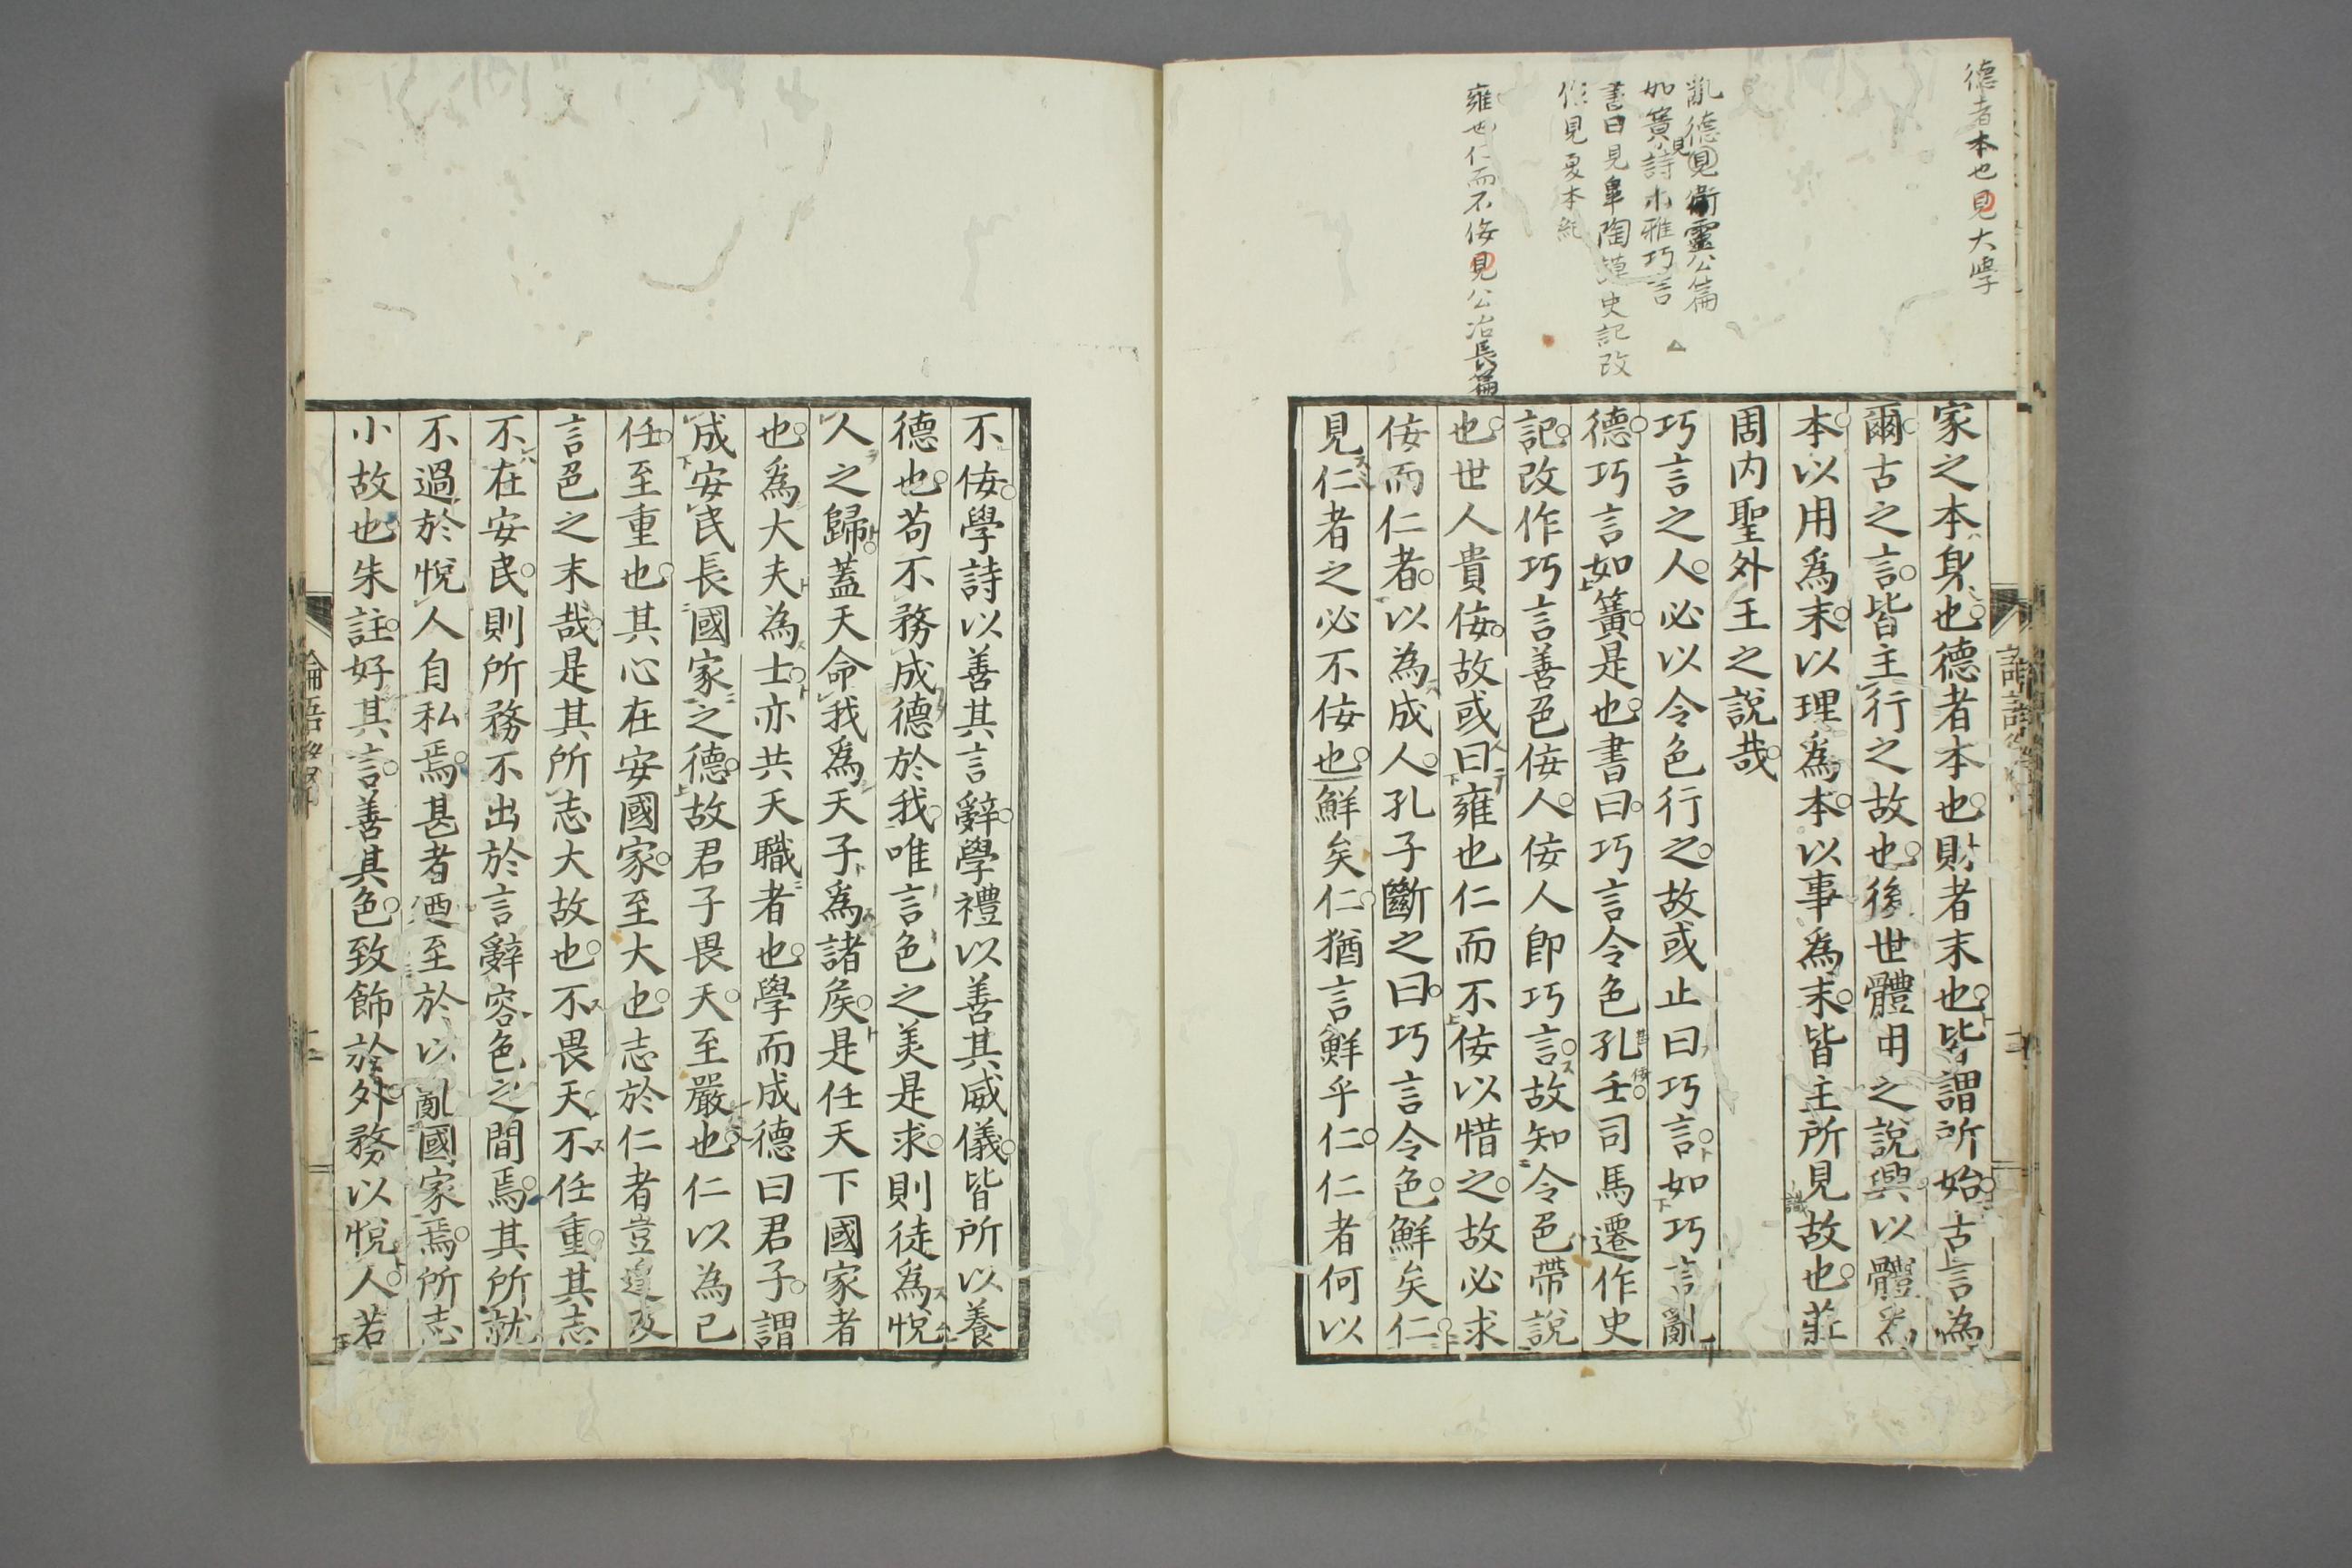 德者本也見大學
亂德見衛靈公篇
如簧見詩小雅巧言
書曰見皐陶謨史記改
作見夏本紀
雍也仁而不佞見公冶長篇
家之本身也德者本也財者末也皆謂所始古言為
爾古之言皆主行之故也後世體用之說興以體為
本以用爲末以理爲本以事爲末皆主所見故也莊
周内聖外王之說哉
巧言之人必以令色行之故或止曰巧言如巧言亂
德巧言如簧是也書曰巧言令色孔壬司馬遷作史
記改作巧言善色佞人佞人即巧言故知令色帶說
也世人貴佞故或曰雍也仁而不佞以惜之故必求
佞而仁者以為成人孔子斷之曰巧言令色鮮矣仁
見仁者之必不佞也鮮矣仁猶言鮮乎仁仁者何以
不佞學詩以善其言辭學禮以善其威儀皆所以養
德也苟不務成德於我唯言色之美是求則徒爲悅
人之歸蓋天命我爲天子爲諸侯是任天下國家者
也爲大夫為士亦共天職者也學而成德曰君子謂
成安民長國家之德故君子畏天至嚴也仁以為己
任至重也其心在安國家至大也志於仁者豈遑及
言色之末哉是其所志大故也不畏天不任重其志
不在安民則所務不出於言辭容色之間焉其所就
不過於悅人自私焉甚者廼至於以亂國家焉所志
小故也朱註好其言善其色致飾於外務以悅人若
論語